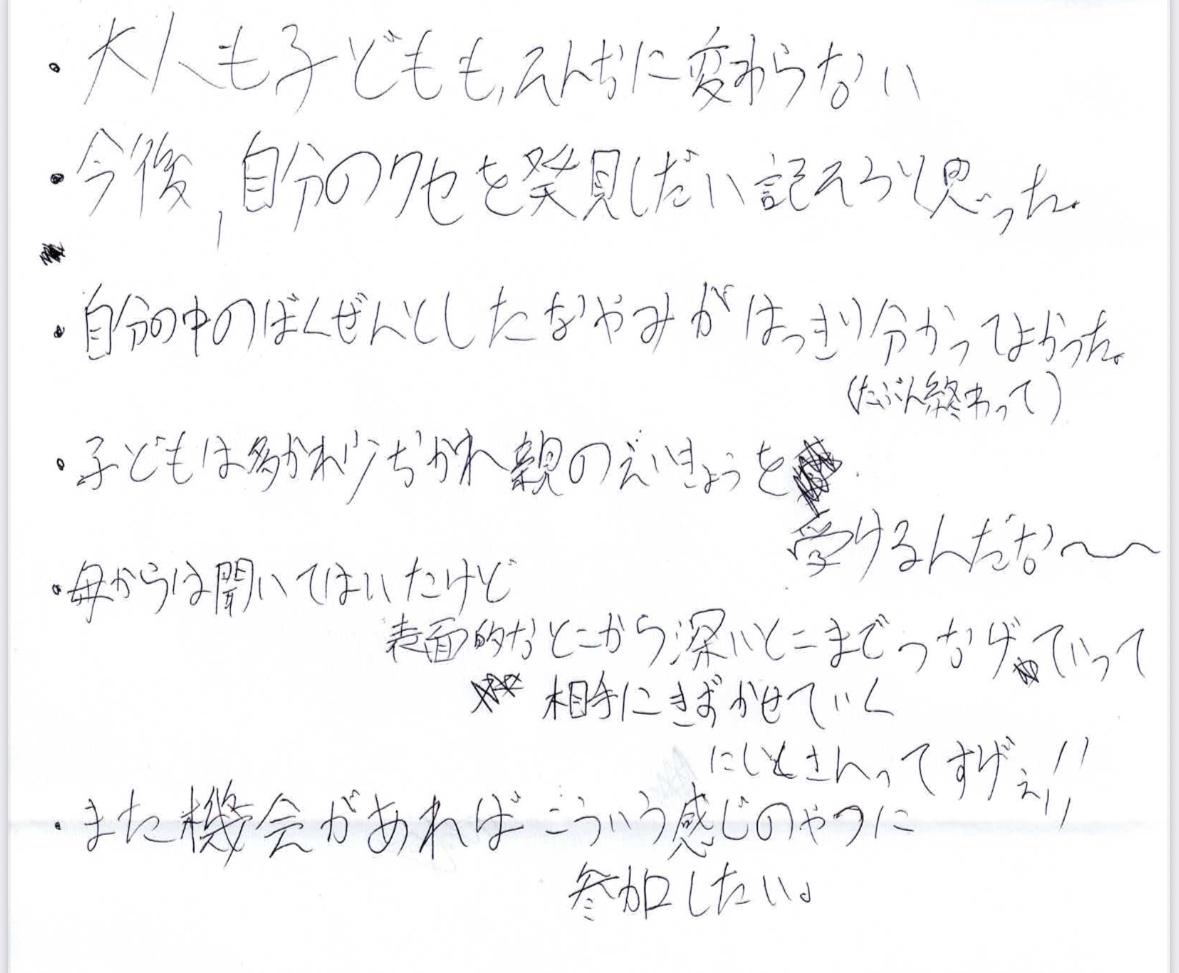 ・大人も子どもも、そんなに変わらない
・今後、自分のクセを発見しだい記そうと思った。
・自分の中のばくぜんとしたなやみがはっきり分かってよかった。
(たぶん終わって)
・子どもは多かれ少ぢかれ親のえいきょうを
受けるんだな〜〜
・母からは聞いてはいたけど
表面的なとこから深いとこまでつなげていって
相手にきずかせていく
にしときんってすげぇ!!
・また機会があればこういう感じのやつに
参加したい。